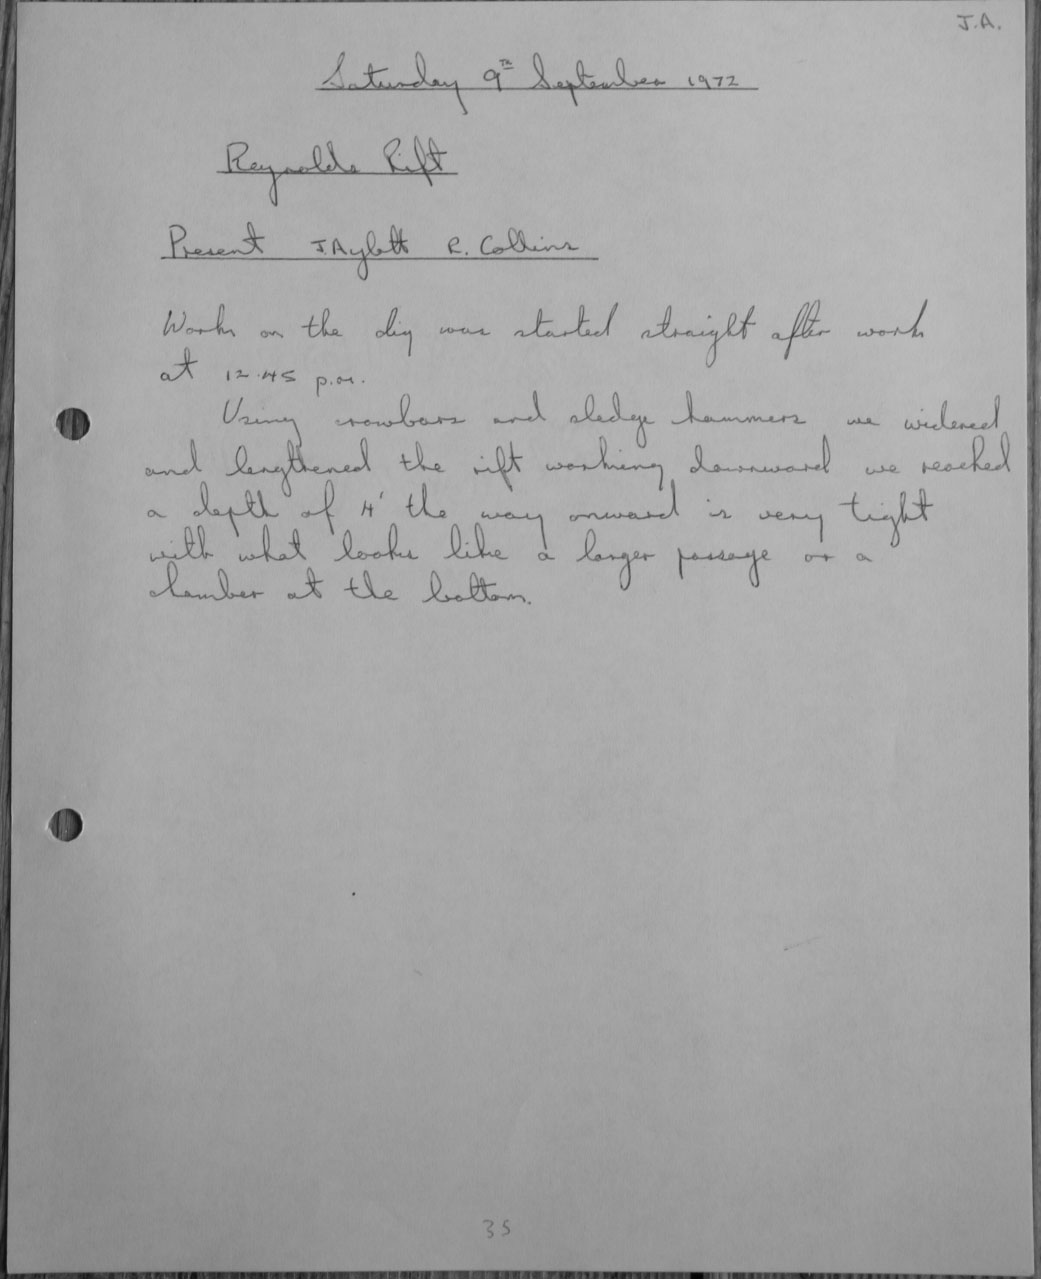 J.A.
Saturday 9TH September 1972
Reynolds Rift
Present J.Aylett R. Collins
Work on the dig was started straight after work
at 12.45 p.m.
Using crowbars and sledge hammers we widened
and lengthened the rift working downward we reached
a depth of 4' the way onward is very tight
with what looks like a larger passage or a
chamber at the bottom.
35